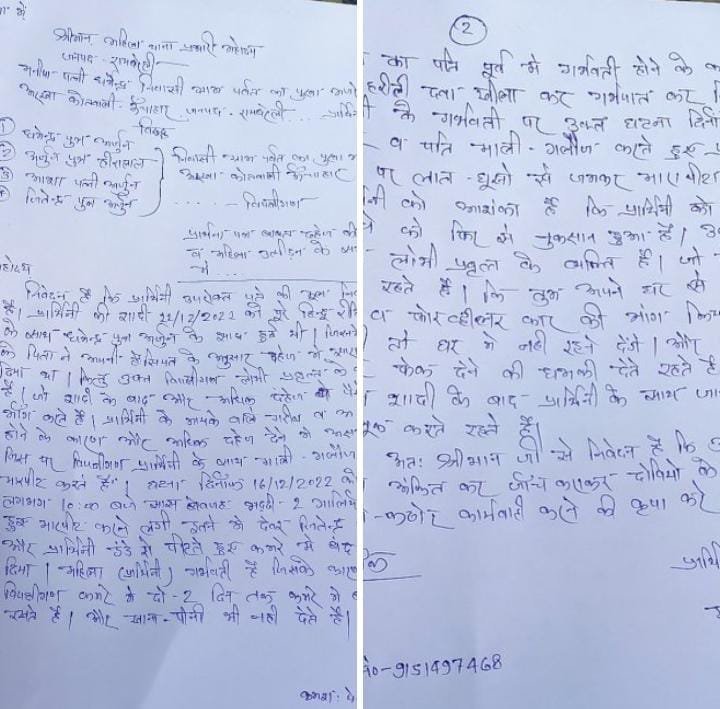 श्रीमान महिला थाना प्रभारी महोदय
जनपद - रायबरेली
पत्नी धर्मेन्द्र निवासी ग्राम पर्वत का पुरवा मजरे
अरखा कोतवाली - ऊँचाहार जनपद - रायबरेली ....
विरुद्ध
धर्मेन्द्र पुत्र अर्जुन
अर्जुन पुत्र हीरालाल
आशा पत्नी अर्जुन
जितेन्द्र पुत्र अर्जुन
निवासी ग्राम पर्वत का पुरवा
अरखा कोतवाली ऊँचाहार
..... - विपक्षीगण
प्रार्थना पत्र बाबत दहेज की
व महिला उत्पीड़न के
में ....
निवेदन है कि प्रार्थिनी उपरोक्त पते की मूल
है। प्रार्थिनी की शादी /12/2022 को हिन्दू
के साथ धर्मेन्द्र पुत्र अर्जुन के साथ हुई थी।
के पिता ने अपनी हैसियत के अनुसार दहेज में
दिया था। किन्तु उक्त विपक्षीगण लोभी
है। जो शादी के बाद और अधिक दहेज
मांग करते हैं। प्रार्थिनी के मायके वाले गरीब व
होने के कारण और अधिक दहेज देने में
जिस पर विपक्षीगण प्रार्थिनी के साथ गाली - गलौज
मारपीट करते हैं। घटना दिनांक 16/12/2022 को
लगभग 10:00 बजे सास बेवजह भद्दी - 2 गालियाँ
हुए मारपीट करने लगी इतने में देवर जितेन्द्र
और प्रार्थिनी डंडे से पीटते हुए कमरे में बंद
दिया। महिला (प्रार्थिनी) गर्भवती है जिसके
विपक्षीगण कमरे में दो - 2 दिन तक कमरे में
रखते हैं। और खाना - पानी भी नहीं देते हैं।
क्रमशः
2
का पति पूर्व में गर्भवती होने के
दवा खीला कर गर्भपात कर
के गर्भवती पर उक्त घटना
व पति गाली - गलौज करते हुए
पर लात - घूसो से जमकर मारा पीटा
को आशंका है कि प्रार्थिनी को
को फिर से नुकसान हुआ है।
लोभी प्रवृत्त के व्यक्ति हैं। जो
रहते हैं। कि तुम अपने घर से
व फोर व्हीलर कार की मांग
तो घर में नहीं रहने देंगे। और
फेक देने की धमकी देते रहते हैं
शादी के बाद प्रार्थिनी के साथ
करते रहते हैं।
अतः श्रीमान जी से निवेदन है कि
अंकित कर जाँच कराकर दोषियों के
कठोर कार्यवाही करने की कृपा करें
नं0-9151497468